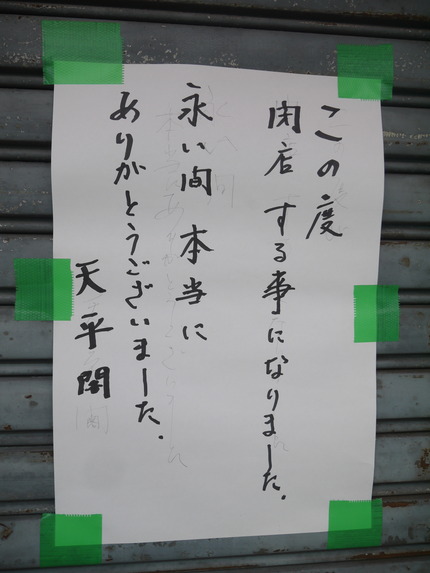 この度
閉店する事になりました。
永い間 本当に
ありがとうございました。
天平閣